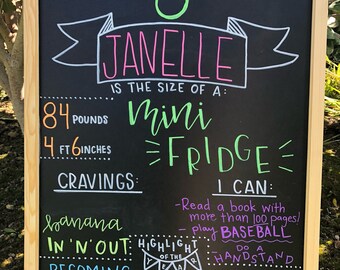 JANELLE
IS THE SIZE OF A:
mini
FRIDGE
84 POUNDS
4 FT 6 INCHES
CRAVINGS:
banana
IN 'N' OUT
BECOMING
HIGHLIGHT
OF THE
I CAN:
- Read a book with
more than 100 pages!
- play BASEBALL
DO A
HANDSTAND